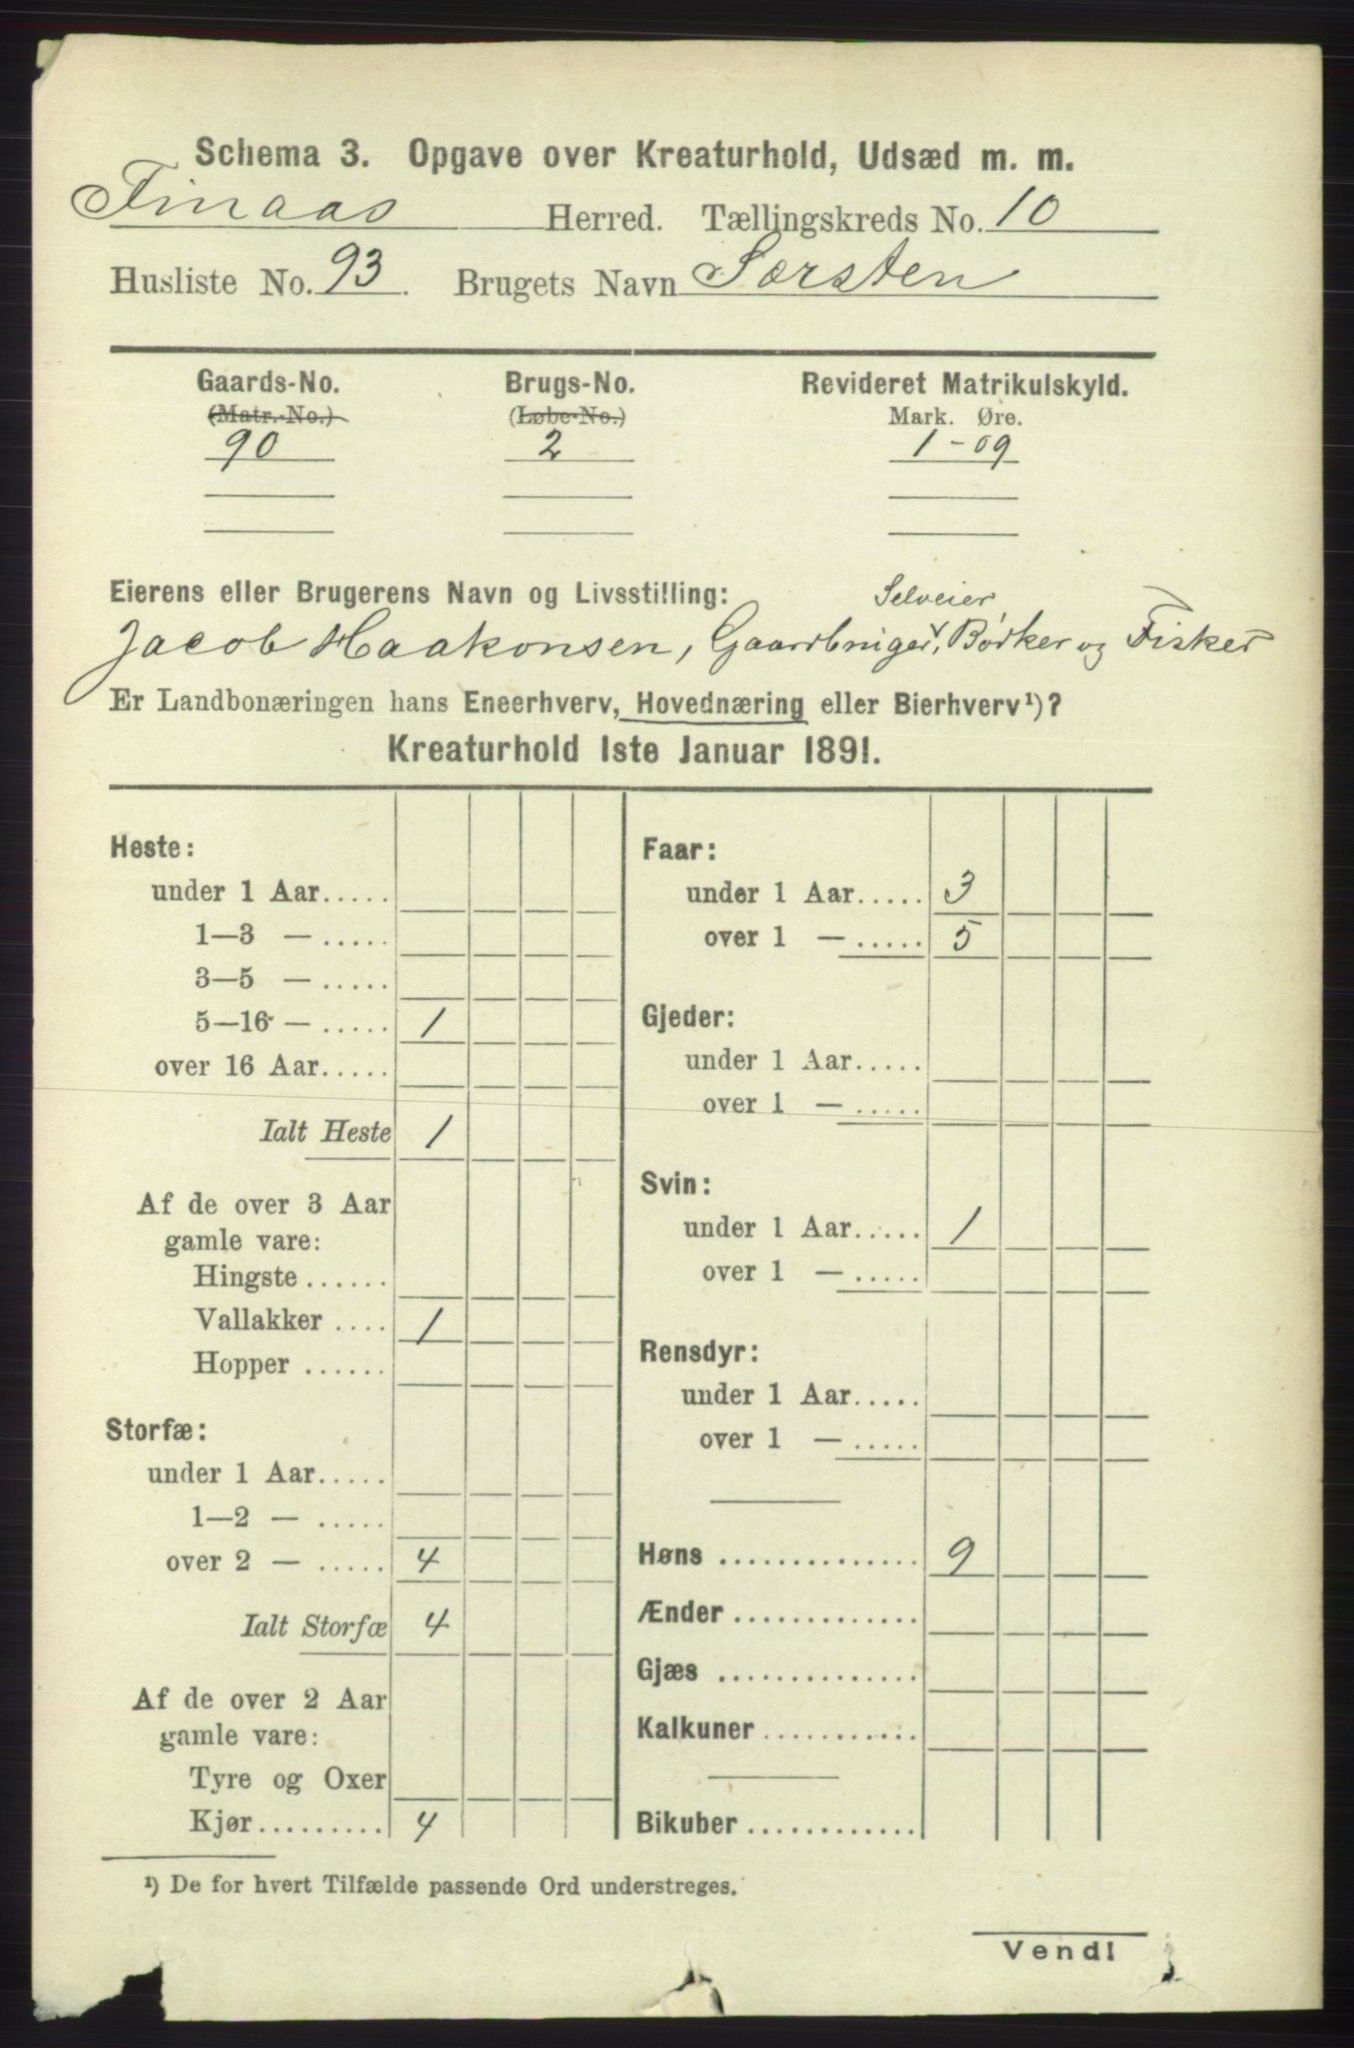 Schema 3. Opgave over Kreaturhold, Udsæd m. m.
Finaas Herred. Tællingskreds No. 10
Husliste No. 93. Brugets Navn Sørsten
Gaards-No. Brugs-No. Revideret Matrikulskyld.
(Matr.-No.) (Løbe-No.) Mark. Øre.
90 2 1-09
Eierens eller Brugerens Navn og Livsstilling: Selveier
Jacob Haakonsen, Gaardbruger, Bødker og Fisker
Er Landbonæringen hans Eneerhverv, Hovednæring eller Bierhverv¹)?
Kreaturhold 1ste Januar 1891.
Heste:
under 1 Aar.....
1—3 — .....
3—5 — .....
5—16 — ..... 1
over 16 Aar.....
Ialt Heste 1
Af de over 3 Aar
gamle vare:
Hingste ......
Vallakker .... 1
Hopper ......
Storfæ:
under 1 Aar.....
1—2 — .....
over 2 — ..... 4
Ialt Storfæ 4
Af de over 2 Aar
gamle vare:
Tyre og Oxer
Kjør......... 4
Faar:
under 1 Aar..... 3
over 1 — ..... 5
Gjeder:
under 1 Aar.....
over 1 — .....
Svin:
under 1 Aar..... 1
over 1 — .....
Rensdyr:
under 1 Aar.....
over 1 — .....
Høns .............. 9
Ænder .............
Gjæs ..............
Kalkuner ...........
Bikuber ............
¹) De for hvert Tilfælde passende Ord understreges.
Vend!